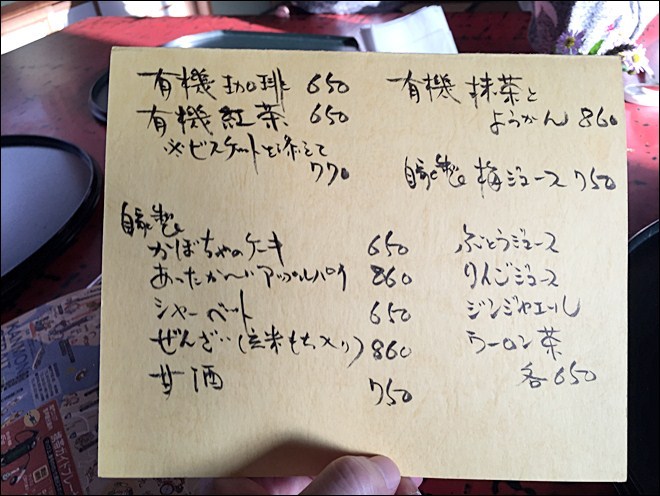 有機 珈琲 650
有機 紅茶 650
※ビスケットを添えて
770
有機 抹茶と
ようかん 860
自家製 梅ジュース 750
自家製
かぼちゃのケーキ 650
あったか〜いアップルパイ 860
シャーベット 650
ぜんざい(玄米もち入り) 860
甘酒 750
ぶどうジュース
りんごジュース
ジンジャエール
ウーロン茶
各650